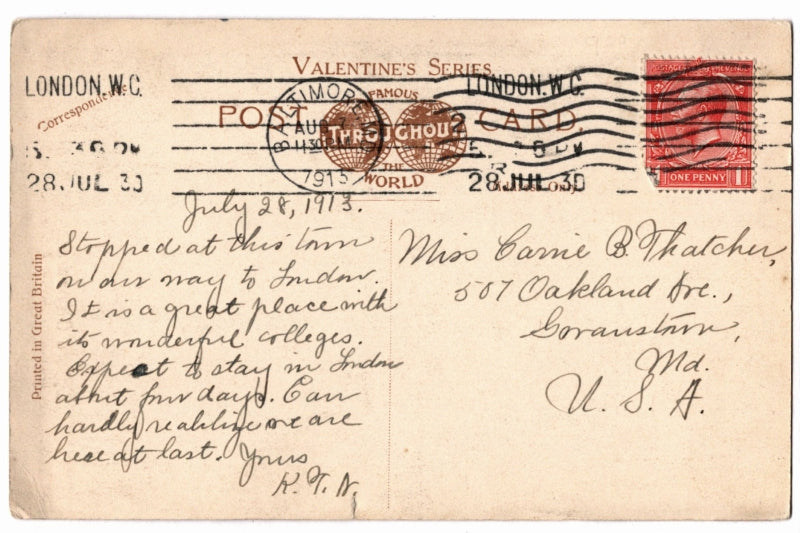 VALENTINE'S SERIES
FAMOUS
POST CARD.
THROUGHOUT
THE
WORLD
Correspondence.
LONDON. W.C.
28 JUL 30
BALTIMORE
AUG 7
11 30
1913
LONDON. W.C.
28 JUL 30
POSTAGE REVENUE
ONE PENNY
Printed in Great Britain
July 28, 1913.
Stopped at this town
on our way to London.
It is a great place with
its wonderful colleges.
Expect to stay in London
about four days. Can
hardly realize we are
here at last. Yours
K. T. N.
Miss Carrie B. Thatcher,
507 Oakland Ave.,
Govanstown,
Md.
U. S. A.